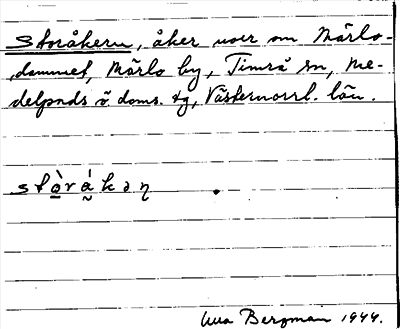 Storåkern, åker norr om Märlo-
dammet, Märlo by, Timrå sn, Me-
delpads ö. doms. tg, Västernorrl. län.
stò̱rá̰kəη
Bergman 1944.